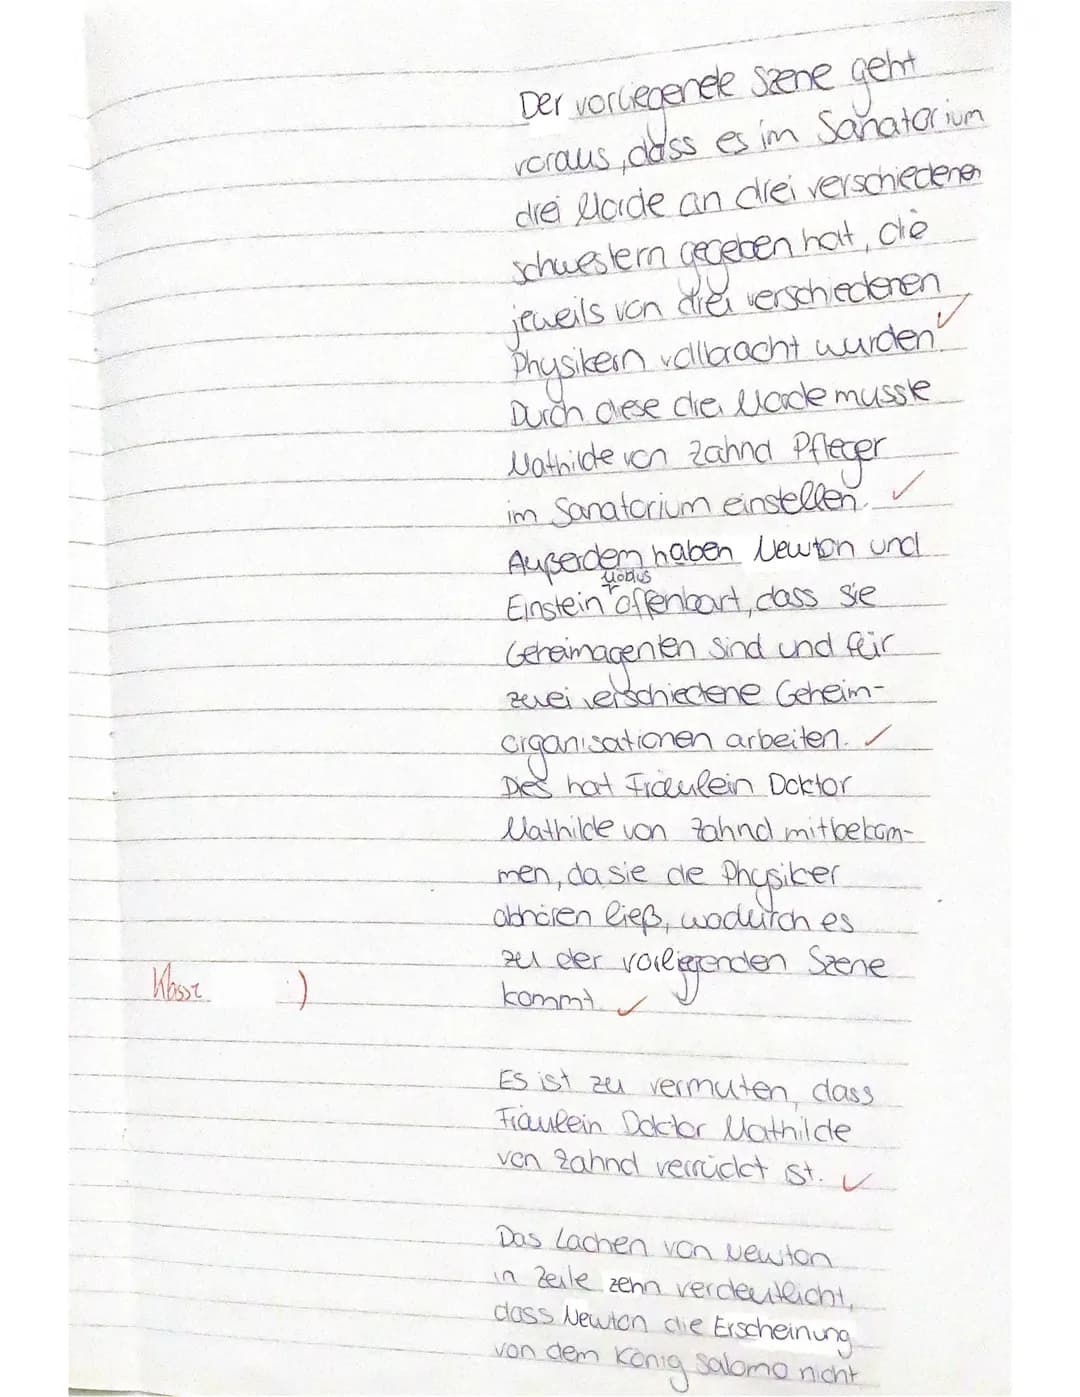 Der vorliegende Szene geht
voraus, dass es im Sanatorium
drei Morde an drei verschiedenen
schwestern gegeben hat, die
jeweils von drei verschiedenen
Physikern vollbracht wurden.
Durch diese drei Morde musste
Mathilde von Zahnd Pfleger
im Sanatorium einstellen.
Außerdem haben Newton und
Möbius
Einstein offenbart, dass sie
Geheimagenten sind und für
zwei verschiedene Geheim-
organisationen arbeiten.
Dies hat Fräulein Doktor
Mathilde von Zahnd mitbekom-
men, da sie die Physiker
abhören ließ, wodurch es
zu der vorliegenden Szene
Klasse :)
kommt.
Es ist zu vermuten, dass
Fräulein Doktor Mathilde
von Zahnd verrückt ist.
Das Lachen von Newton
in Zeile zehn verdeutlicht,
dass Newton die Erscheinung
von dem König Salomo nicht